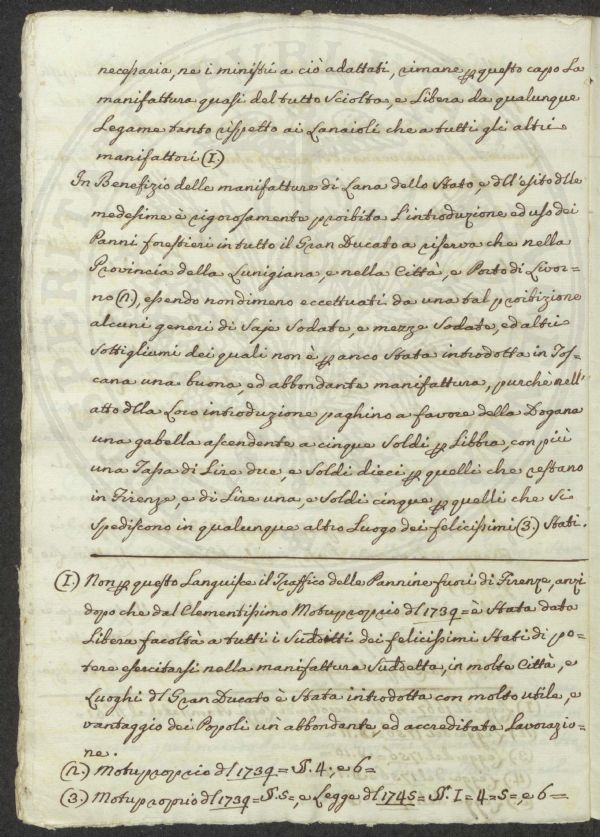 necessaria, ne i ministri a ciò adattati, rimane p questo capo La
manifattura quasi del tutto Sciolta, e Libera da qualunque
Legame tanto rispetto ai Lanaioli che a tutti gli altri
manifattori (1.)
In Benefizio delle manifatture di Lana dello Stato, e dll'esito dlle
medesime è rigorosamente proibita L'introduzione ed uso dei
Panni forestieri in tutto il Gran Ducato a riserva che nella
Provincia della Lunigiana, e nella Città, e Porto di Livor=
no (2.), essendo nondimeno eccettuati da una tal proibizione
alcuni generi di Saje Sodate, e mezze Sodate, ed altri
Sottigliumi dei quali non è p anco Stata introdotta in Tos=
cana una buona, ed abbondante manifattura, purchè nell'
atto dlla Loro introduzione paghino a favore della Dogana
una gabella ascendente a cinque Soldi p Libbra, con più
una Tassa di Lire due, e Soldi dieci p quelli che restano
in Firenze, e di Lire una, e Soldi cinque p quelli che Si
Spediscono in qualunque altro Luogo dei felicissimi (3.) Stati.
(1.) Non p questo Languisce il Traffico delle Pannine fuori di Firenze, anzi
dopo che dal Clementissimo Motuproprio dl 1739= è Stata data
Libera facoltà a tutti i Sudditti dei felicissimi Stati di po=
tere esercitarsi nella manifattura Suddetta, in molte Città, e
Luoghi dl Gran Ducato è Stata introdotta con molto utile, e
vantaggio dei Popoli un abbondante ed accreditata Lavorazio=
ne.
(2.) Motuproprio dl 1739= §. 4, e 6=
(3.) Motuproprio dl 1739= §. 5=, e Legge dl 1745= §. 1=4=5=, e 6=